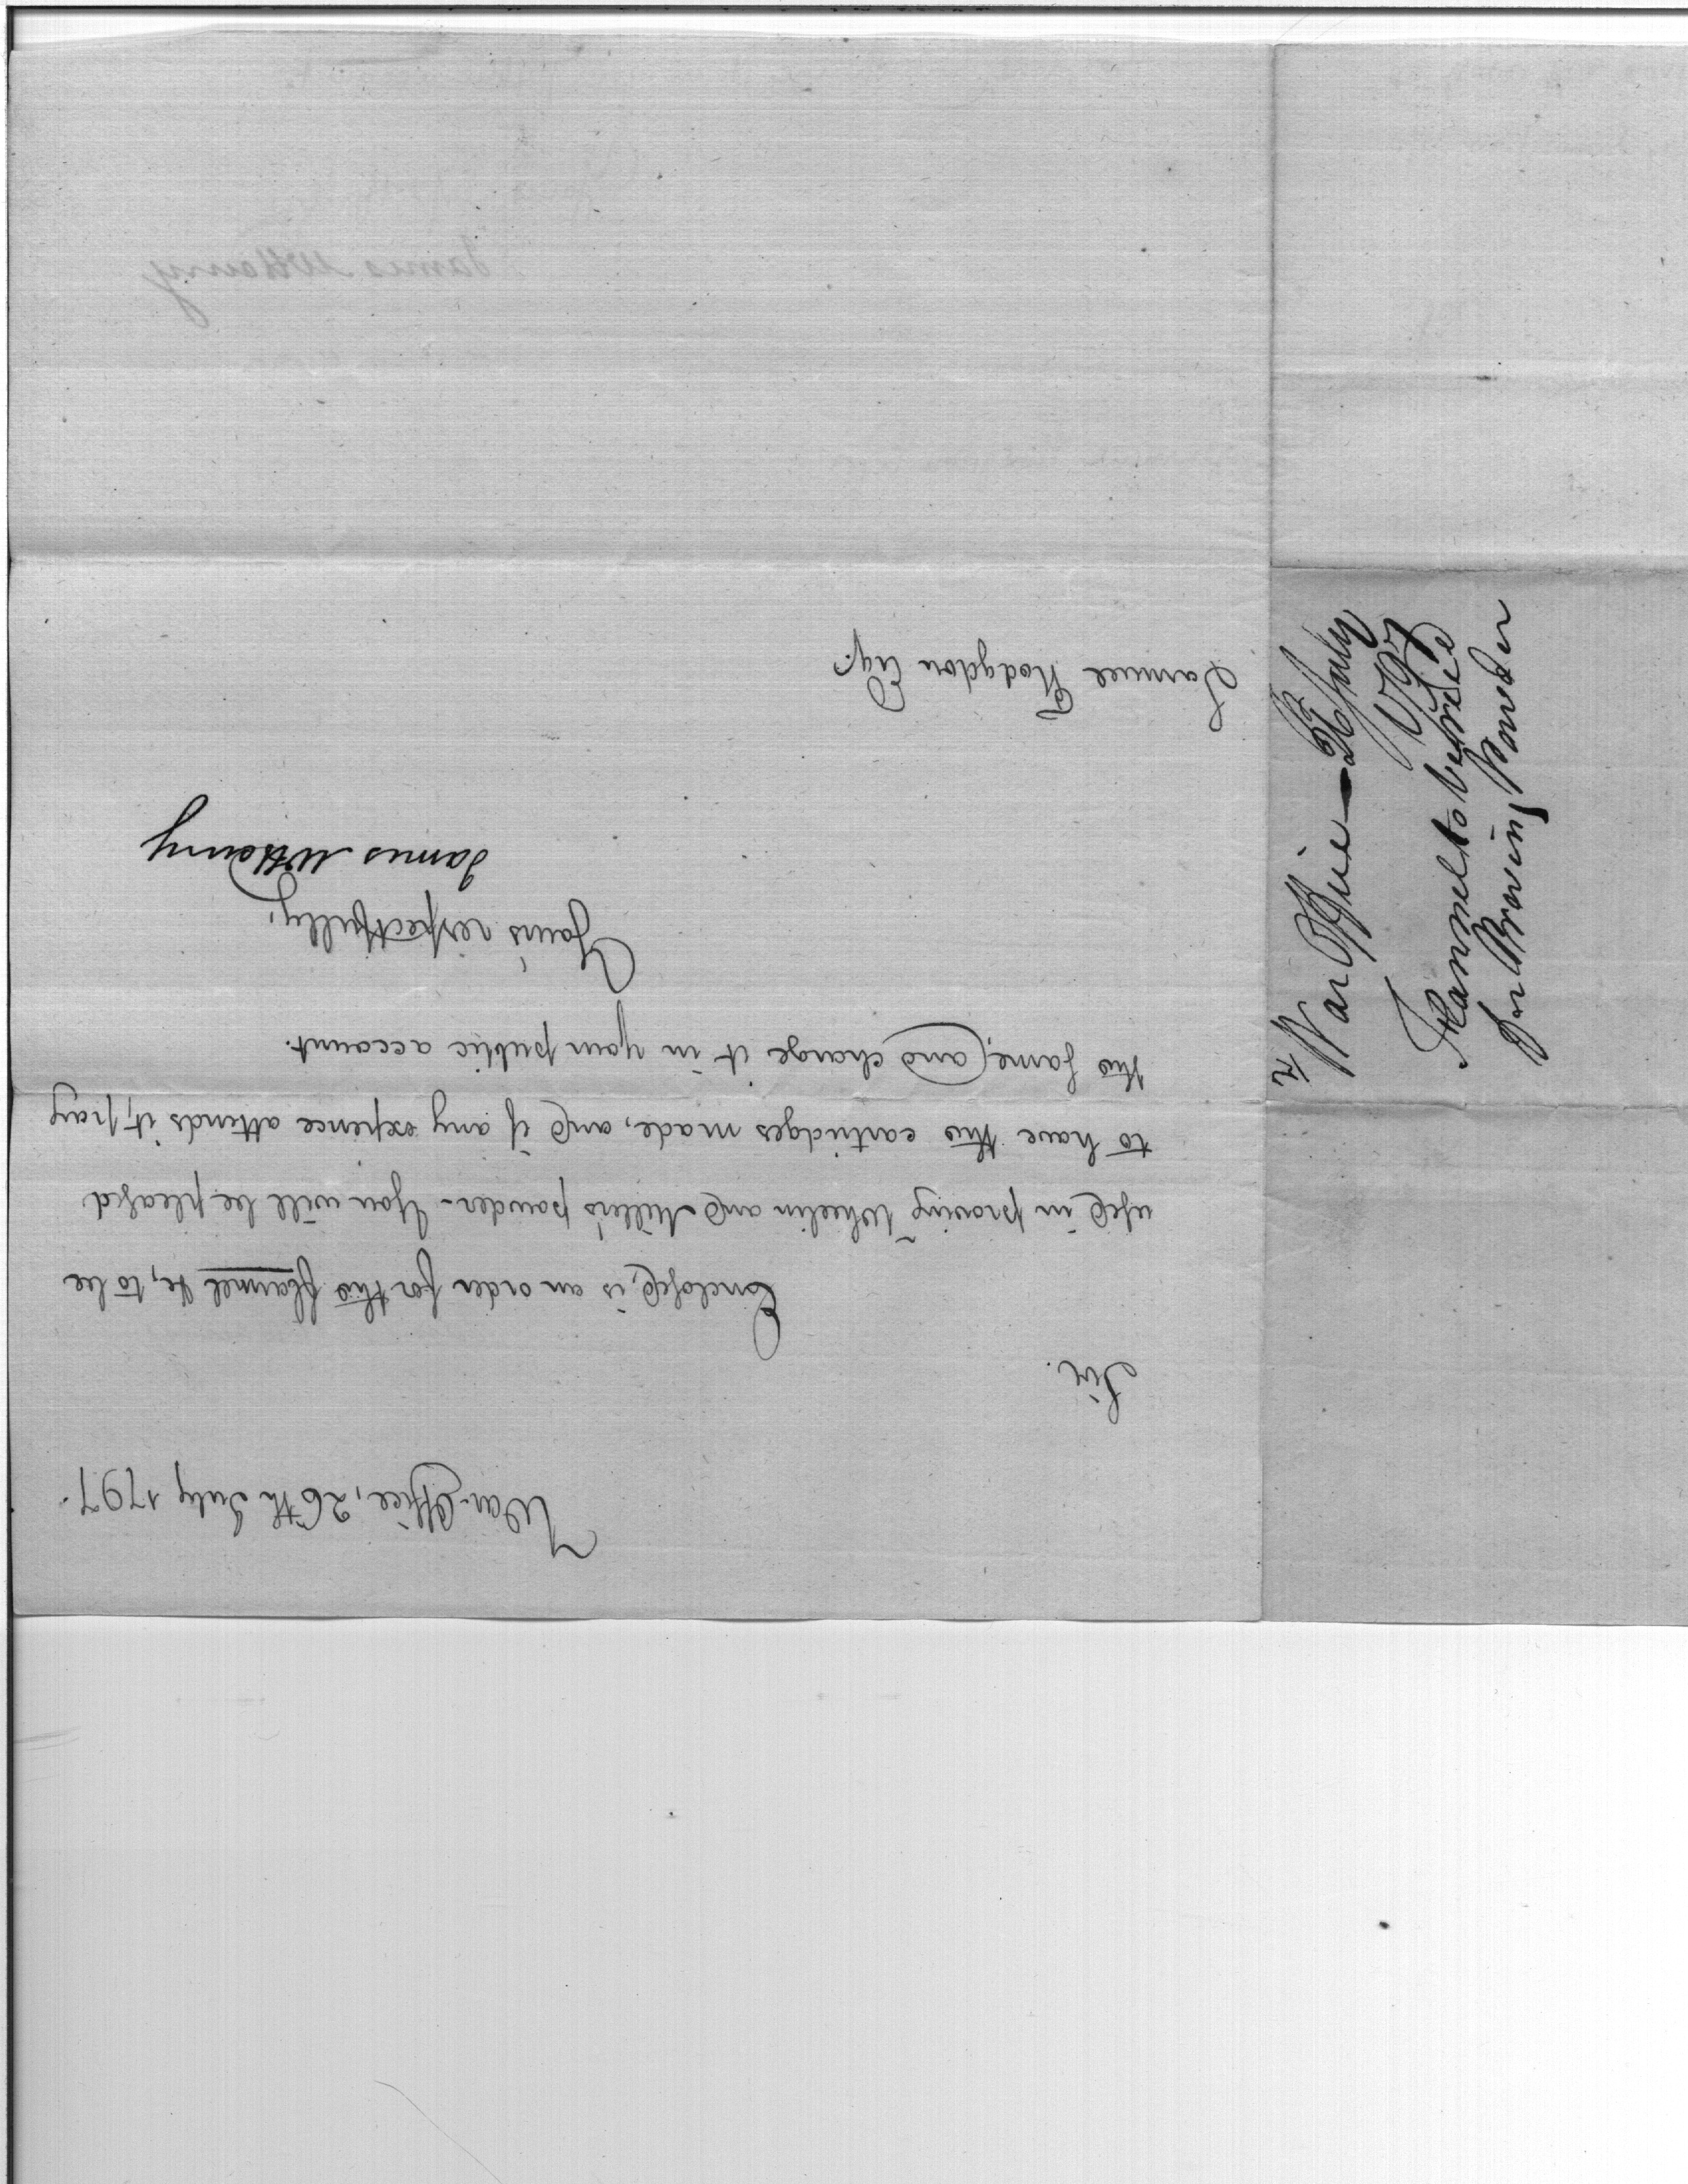 War-Office, 26th July 1797.
Sir.
Enclosed, is an order for the flannel &c, to be
used in proving Whelin and Miller's powder - You will be pleased
to have the cartridges made, and if any expence attends it, pay
the same, and charge it in your public account.
Your's respectfully,
James McHenry
Samuel Hodgdon Esqr.
War Office - 26 July
1797
Flannel to be used
for Proving Powder